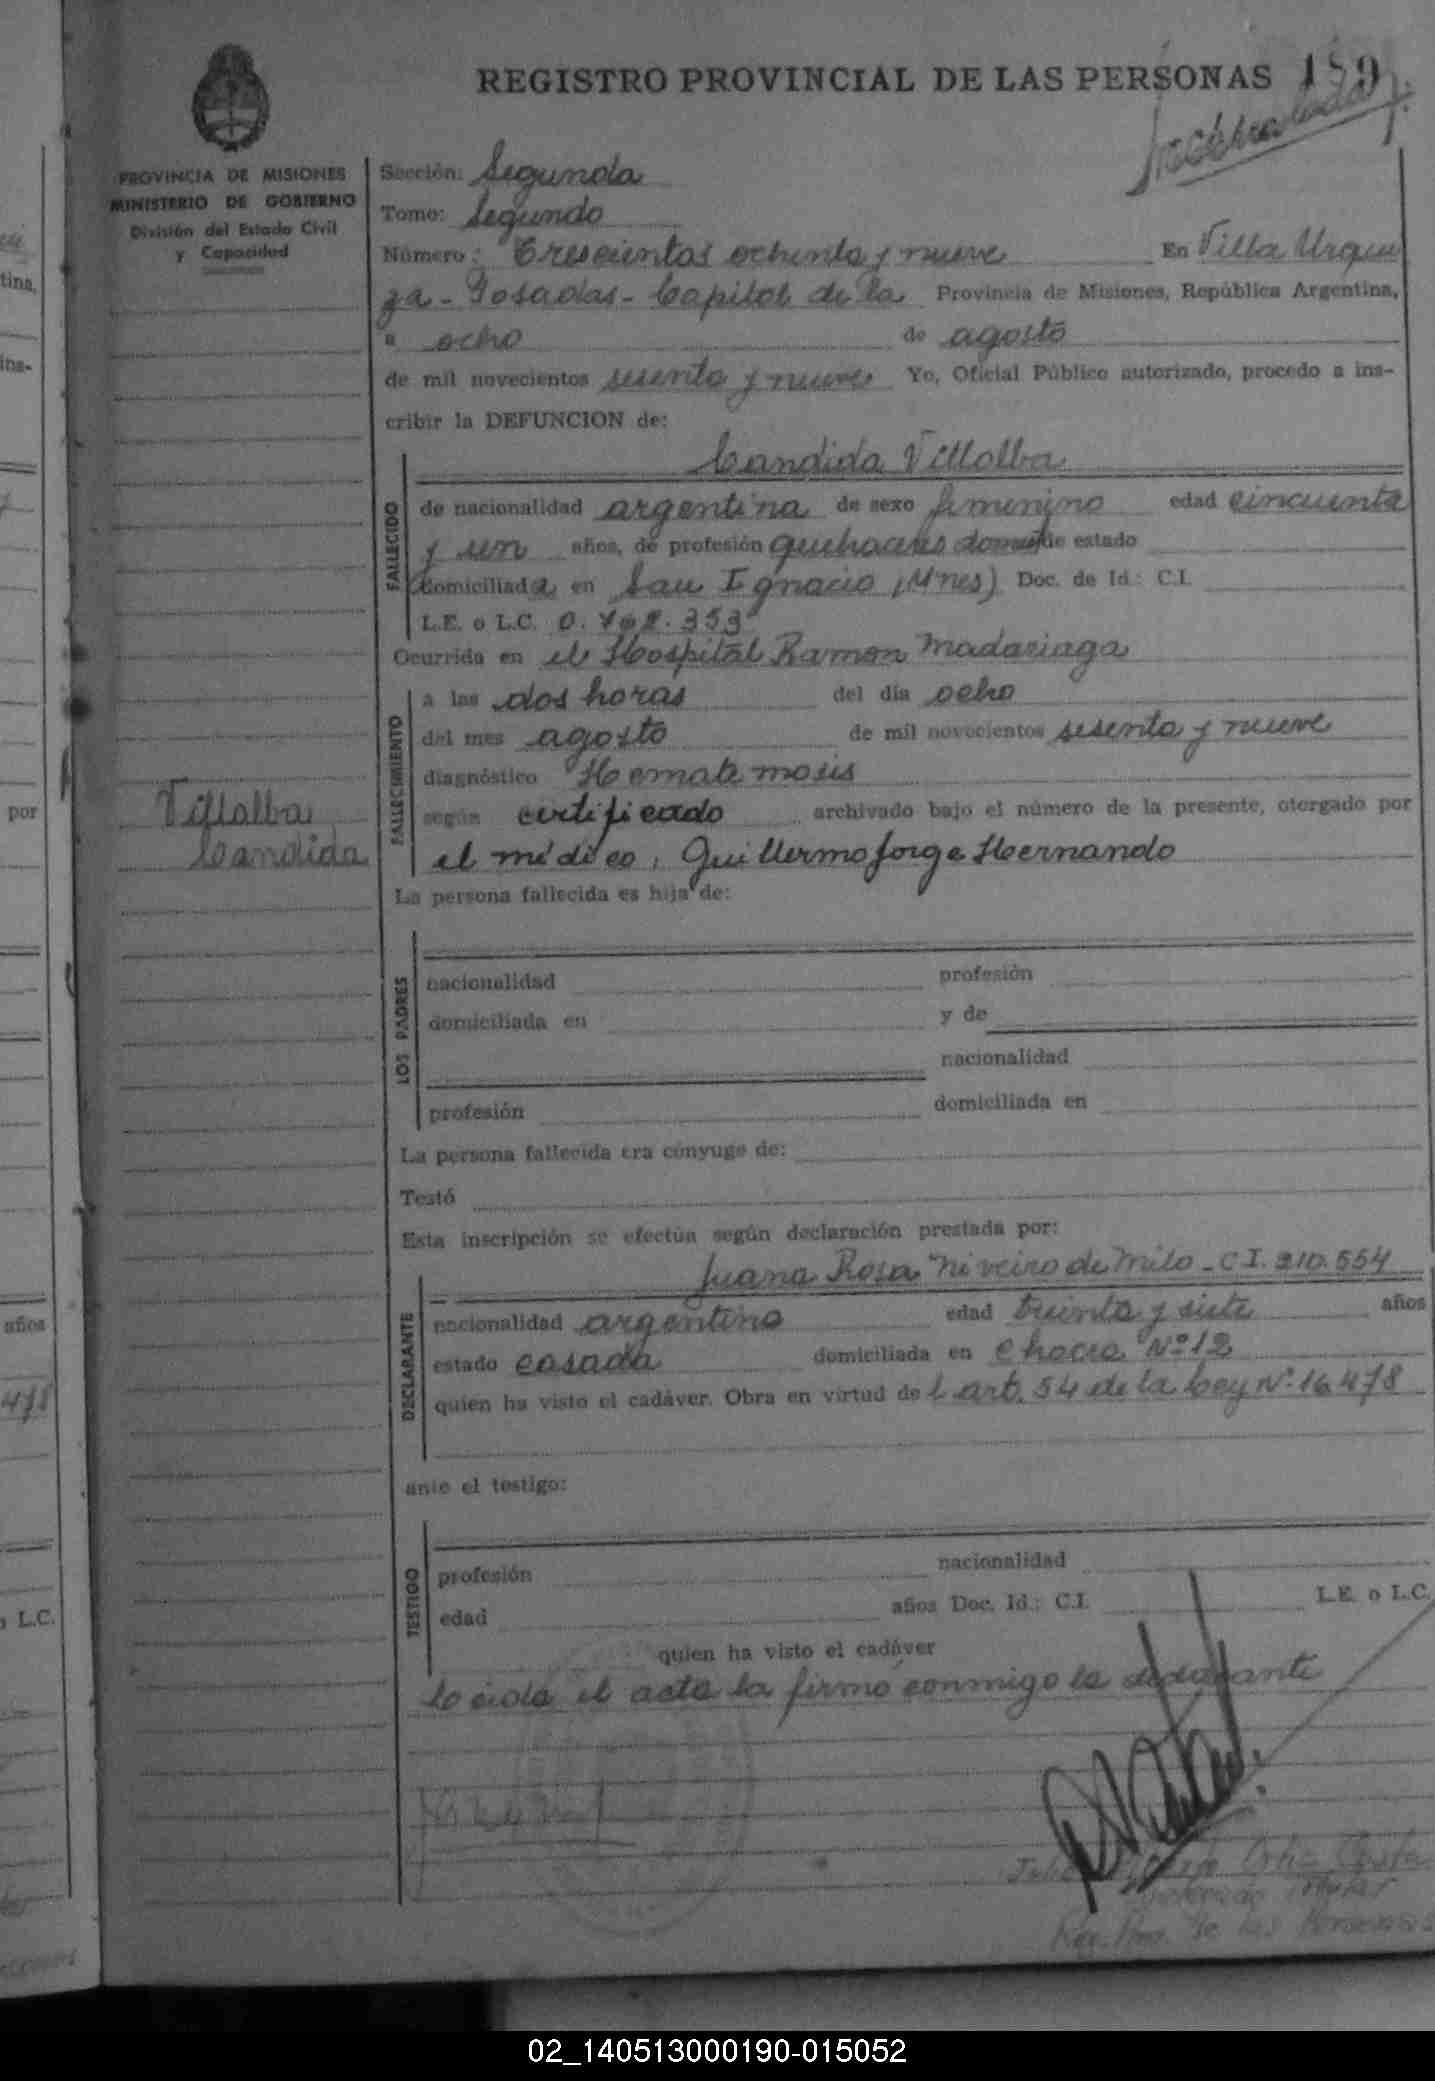 REGISTRO PROVINCIAL DE LAS PERSONAS 189
PROVINCIA DE MISIONES
MINISTERIO DE GOBIERNO
División del Estado Civil
y Capacidad
Sección: Segunda
Tomo: Segundo
Número: Trescientos ochenta y nueve En Villa Urqui
za - Posadas - Capital de la Provincia de Misiones, República Argentina,
a ocho de agosto
de mil novecientos sesenta y nueve Yo, Oficial Público autorizado, procedo a ins-
cribir la DEFUNCION de:
Candida Villalba
FALLECIDO
de nacionalidad argentina de sexo femenino edad cincuenta
y un años, de profesión quehaceres domest de estado
domiciliada en San Ignacio (Mnes) Doc. de Id.: C.I.
L.E. o L.C. 0. 353
Ocurrida en el Hospital Ramon Madariaga
FALLECIMIENTO
a las dos horas del día ocho
del mes agosto de mil novecientos sesenta y nueve
diagnóstico Hematemosis
según certificado archivado bajo el número de la presente, otorgado por
el médico, Guillermo Jorge Hernando
Villalba
Candida
La persona fallecida es hija de:
LOS PADRES
nacionalidad profesión
domiciliada en y de
nacionalidad
profesión domiciliada en
La persona fallecida era cónyuge de:
Testó
Esta inscripción se efectúa según declaración prestada por:
Juana Rosa Niveiro de Milo - C I. 210.554
DECLARANTE
nacionalidad argentina edad treinta y siete años
estado casada domiciliada en chacra Nº 12
quien ha visto el cadáver. Obra en virtud del art. 54 de la Ley Nº 16.478
ante el testigo:
TESTIGO
profesión nacionalidad
edad años Doc. Id.: C.I. L.E. o L.C.
quien ha visto el cadáver
Leida el acta la firmó conmigo la declarante
Ortiz
Titular
Reg. Prov. de las Personas
tina,
ins-
por
años
478
o L.C.
02_140513000190-015052